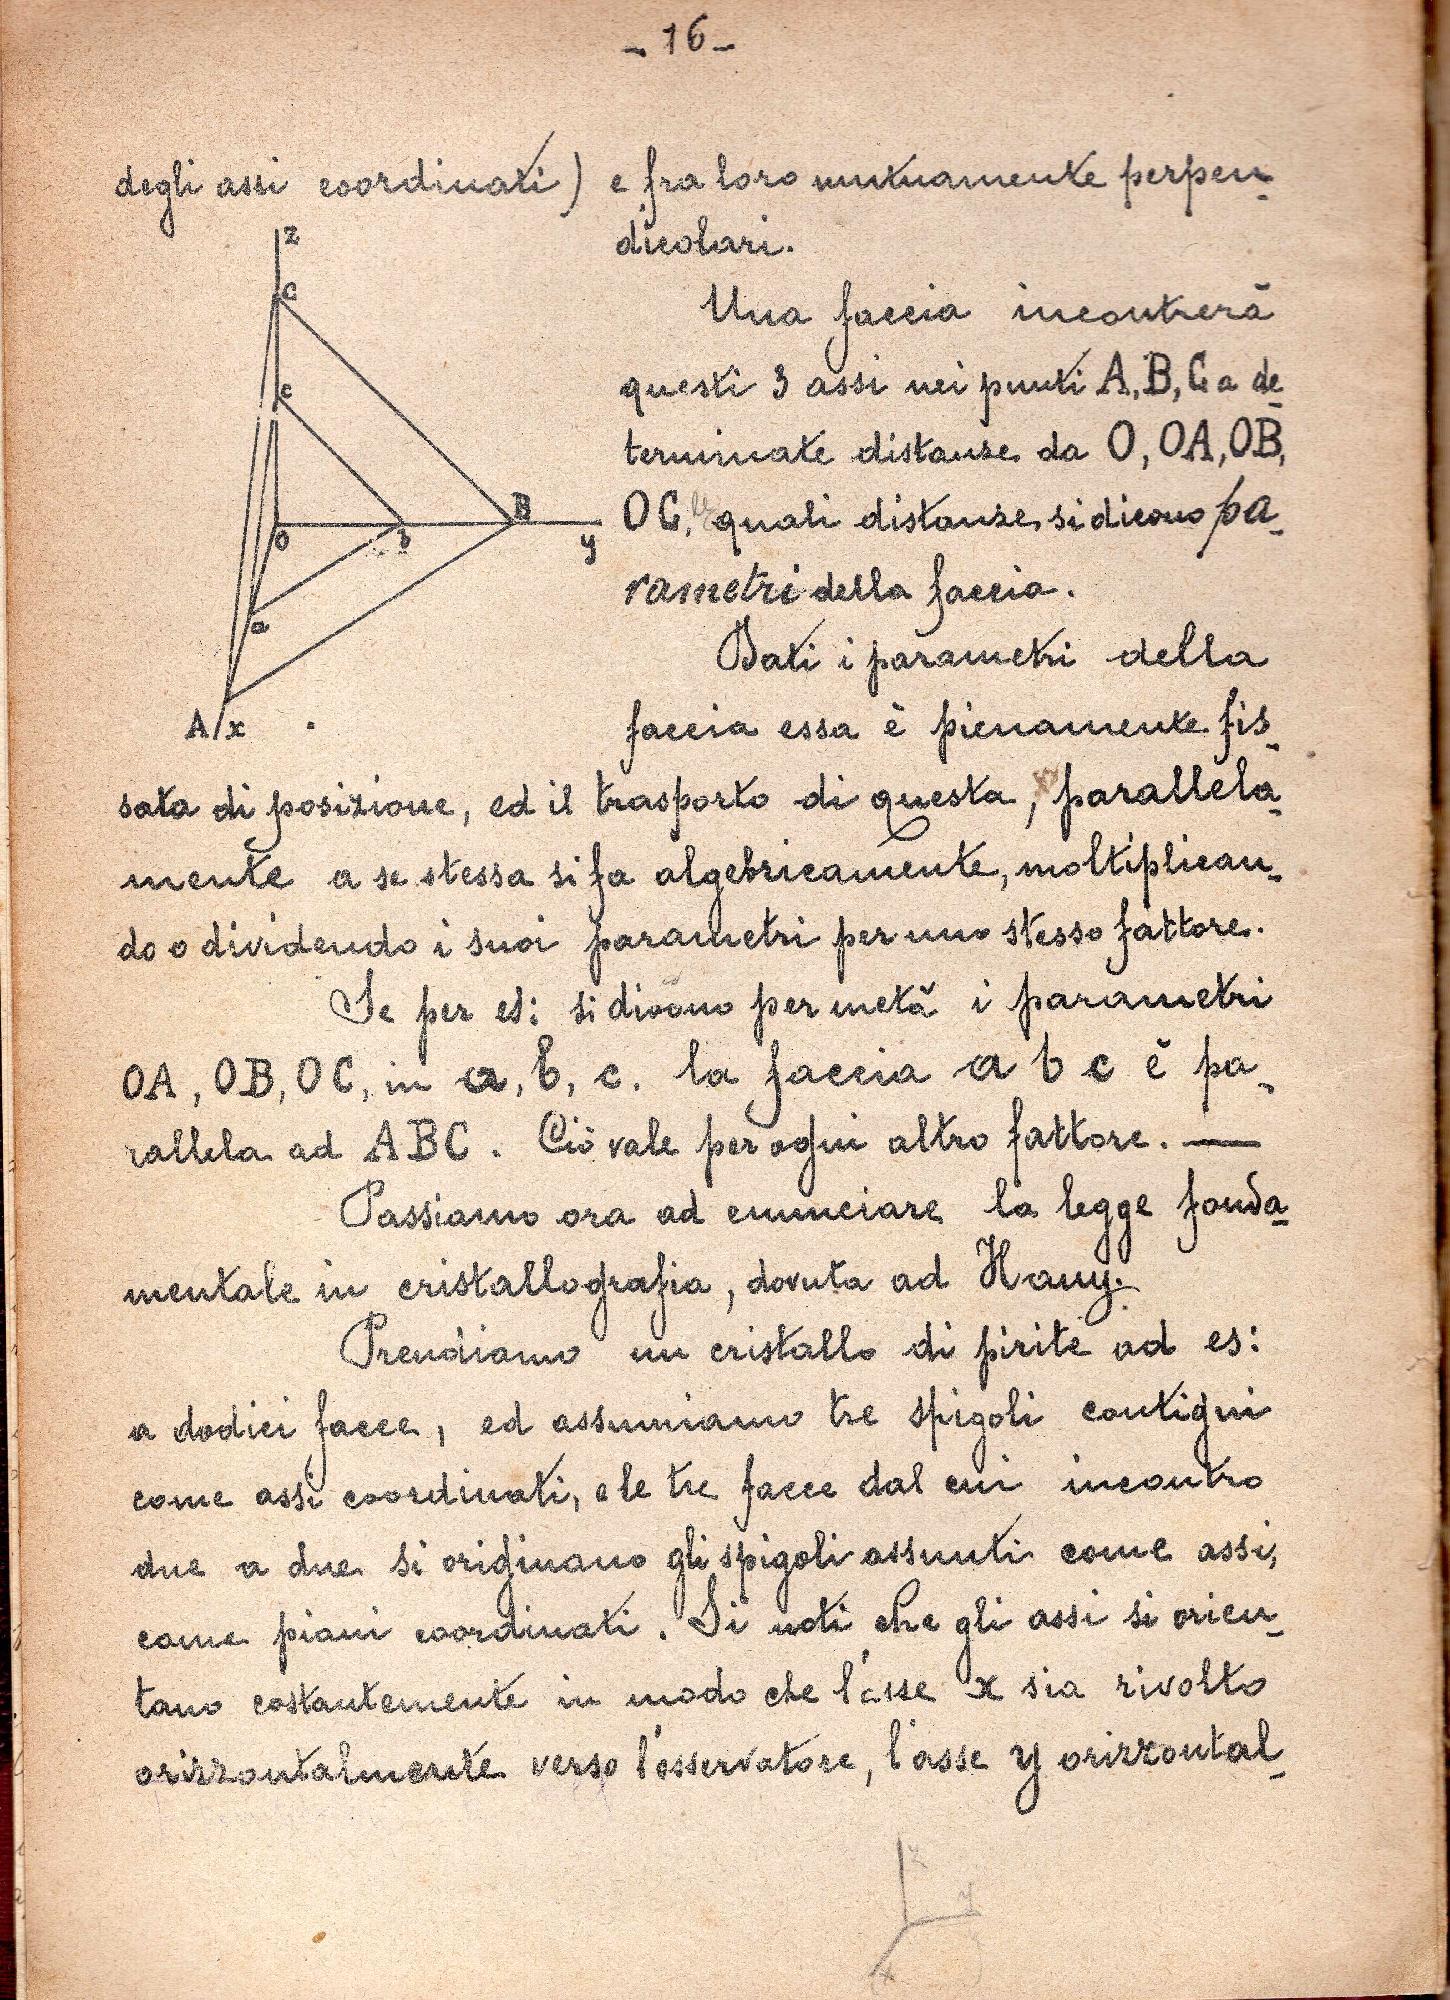 - 16 -
degli assi coordinati) e fra loro mutuamente perpen-
dicolari.
z
C
c
O
b
B
y
a
A
x
Una faccia incontrerà
questi 3 assi nei punti A, B, C a de-
terminate distanze da O, OA, OB,
OC, quali distanze si dicono pa-
rametri della faccia.
Dati i parametri della
faccia essa è pienamente fis-
sata di posizione, ed il trasporto di questa, parallela-
mente a se stessa si fa algebricamente, moltiplican-
do o dividendo i suoi parametri per uno stesso fattore.
Se per es: si dicono per metà i parametri
OA, OB, OC, in a, b, c. la faccia a b c è pa-
rallela ad ABC. Ciò vale per ogni altro fattore. —
Passiamo ora ad enunciare la legge fonda-
mentale in cristallografia, dovuta ad Hauy.
Prendiamo un cristallo di pirite ad es:
a dodici facce, ed assumiamo tre spigoli contigui
come assi coordinati, e le tre facce dal cui incontro
due a due si originano gli spigoli assunti come assi,
come piani coordinati. Si noti che gli assi si orien-
tano costantemente in modo che l'asse x sia rivolto
orizzontalmente verso l'osservatore, l'asse y orizzontal-
z
y
x